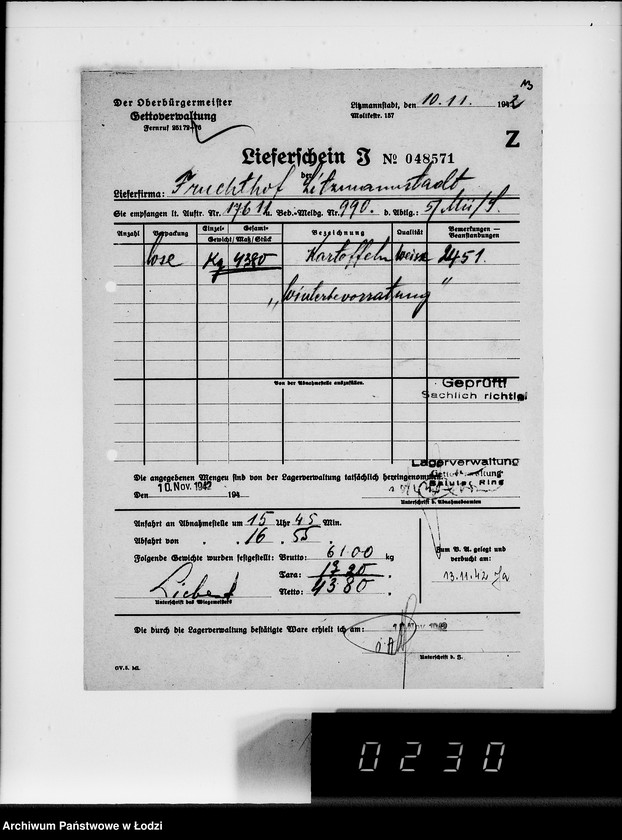 Der Oberbürgermeister
Gettoverwaltung
Fernruf 25172-76
Litzmannstadt, den 10.11. 1942
Moltkestr. 157
Z
Lieferschein J № 048571
der
Lieferfirma: Fruchthof Litzmannstadt
Sie empfangen lt. Auftr. Nr. 17611 u. Bed.-Meldg. Nr. 990. d. Abtlg.:
Anzahl Verpackung Einzel- Gesamt- Gewicht/Maß/Stück Bezeichnung Qualität Bemerkungen — Beanstandungen
lose Kg 4380 Kartoffeln weiss 2451.
„Winterbevorratung"
Von der Abnahmestelle auszufüllen.
Geprüft!
Sachlich richtig
Lagerverwaltung
Gettoverwaltung
Baluter Ring
Die angegebenen Mengen sind von der Lagerverwaltung tatsächlich hereingenommen.
Den 10. Nov. 1942 194
Unterschrift des Abnahmebeamten
Anfahrt an Abnahmestelle um 15 Uhr 45 Min.
Abfahrt von " " 16 " 55 "
Folgende Gewichte wurden festgestellt: Brutto: 6100 kg
Tara: 1720 "
Netto: 4380 "
Unterschrift des Wiegemeisters
Zum B. A. gelegt und
verbucht am:
13.11.42
Die durch die Lagerverwaltung bestätigte Ware erhielt ich am:
Unterschrift d. F.
GV. 5. Ml.
0230
Archiwum Państwowe w Łodzi